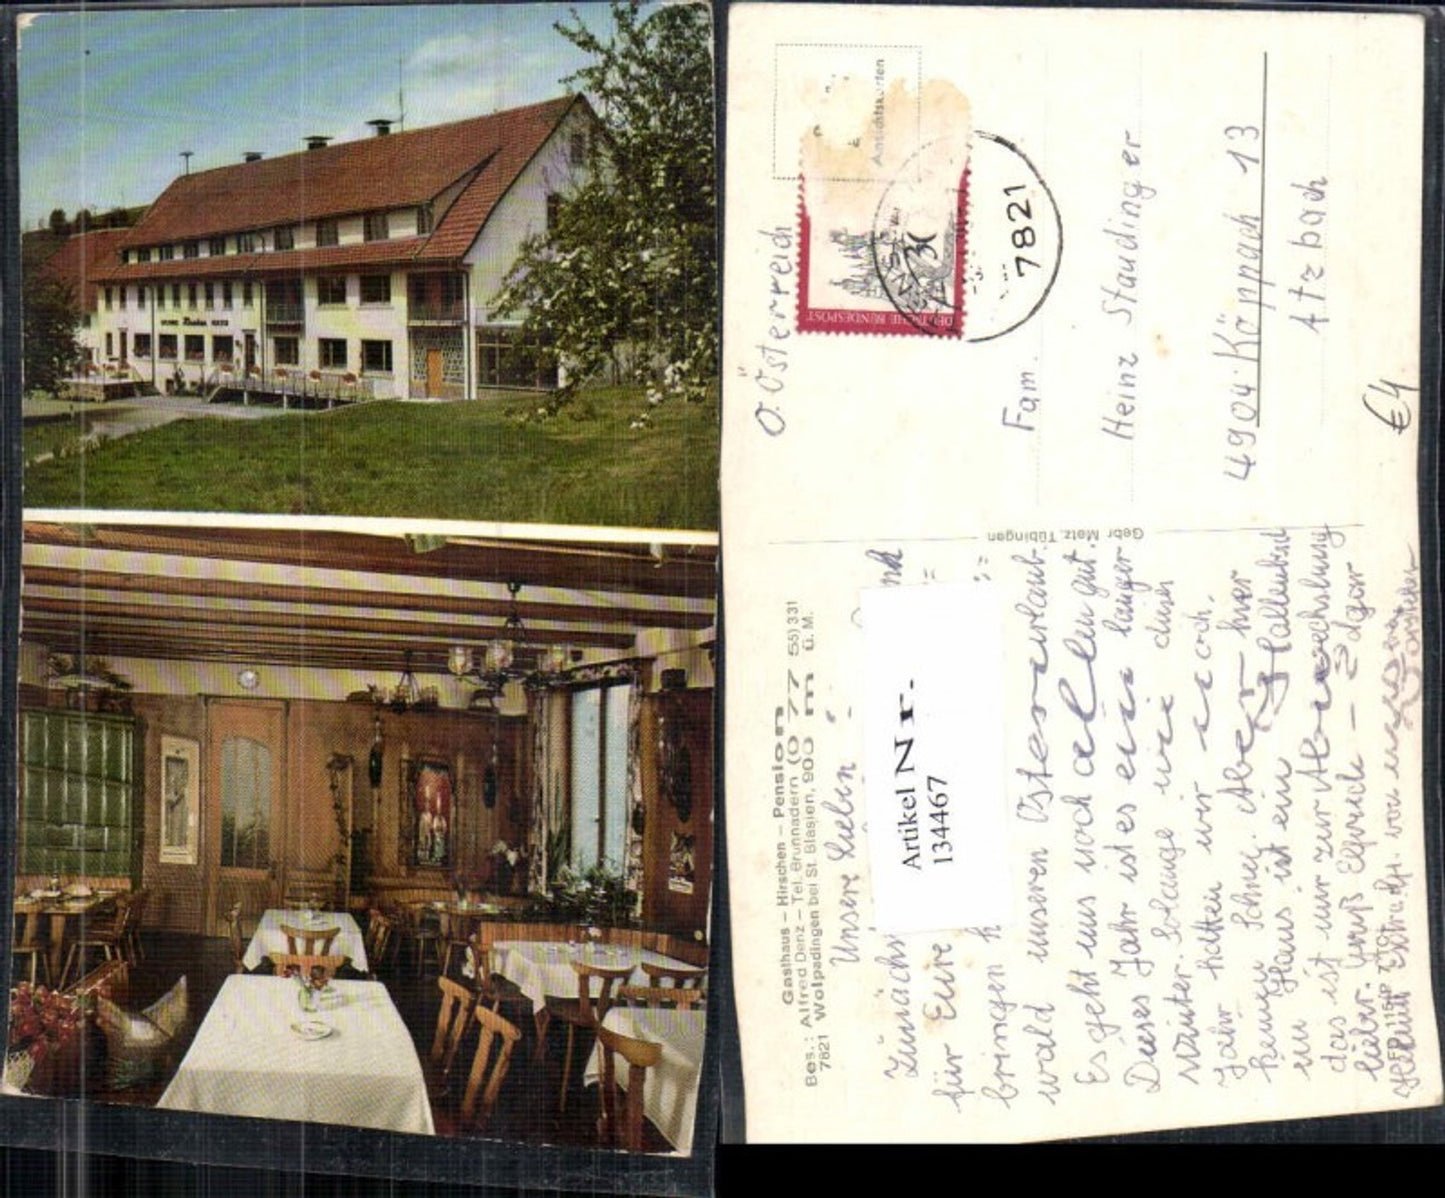 Ansichtskarten
DEUTSCHE BUNDESPOST
30
7821
O. Österreich
Fam.
Heinz Staudinger
4904 Köppach 13
Atzbach
€4
Gebr Metz, Tübingen
Gasthaus – Hirschen – Pension
Bes.: Alfred Denz – Tel. Brunnadern (0 77 55) 331
7821 Wolpadingen bei St. Blasien, 900 m ü. M.
Artikel Nr.
134467
Unsere Lieben
Zunächst
für Eure
bringen
wald unseren Osterurlaub.
Es geht uns noch allen gut.
Dieses Jahr ist es ein langer
Winter. Solange wie dieses
Jahr hatten wir noch
keinen Schnee. Aber hier
im Haus ist ein Hallenbad
das ist nur zur Abwechslung
lieber. Gruß Elfriede – Edgar